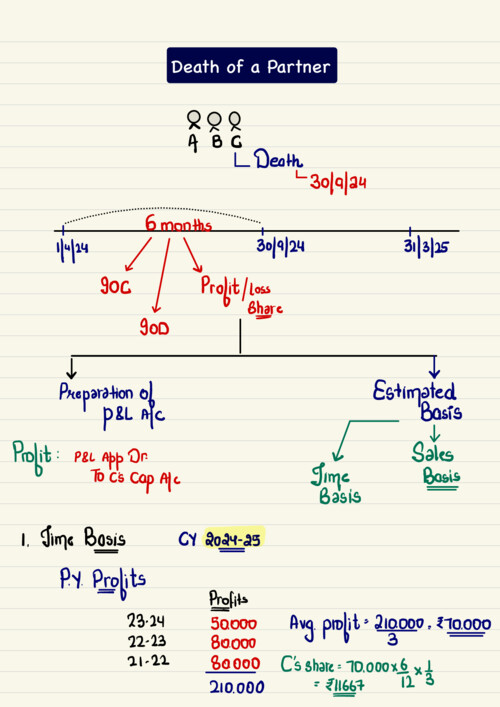 Death of a Partner
A B C
Death
30/9/24
6 months
1/4/24 30/9/24 31/3/25
IOC Profit/Loss
Share
IOD
Preparation of Estimated
P&L A/c Basis
Profit: P&L App Dr. Time Sales
To C's Cap A/c Basis Basis
1. Time Basis CY 2024-25
P.Y. Profits
Profits
23-24 50,000 Avg. profit = 210,000 = ₹70,000
22-23 80000 3
21-22 80000 C's share = 70,000 x 6 x 1
210,000 = ₹11667 12 3